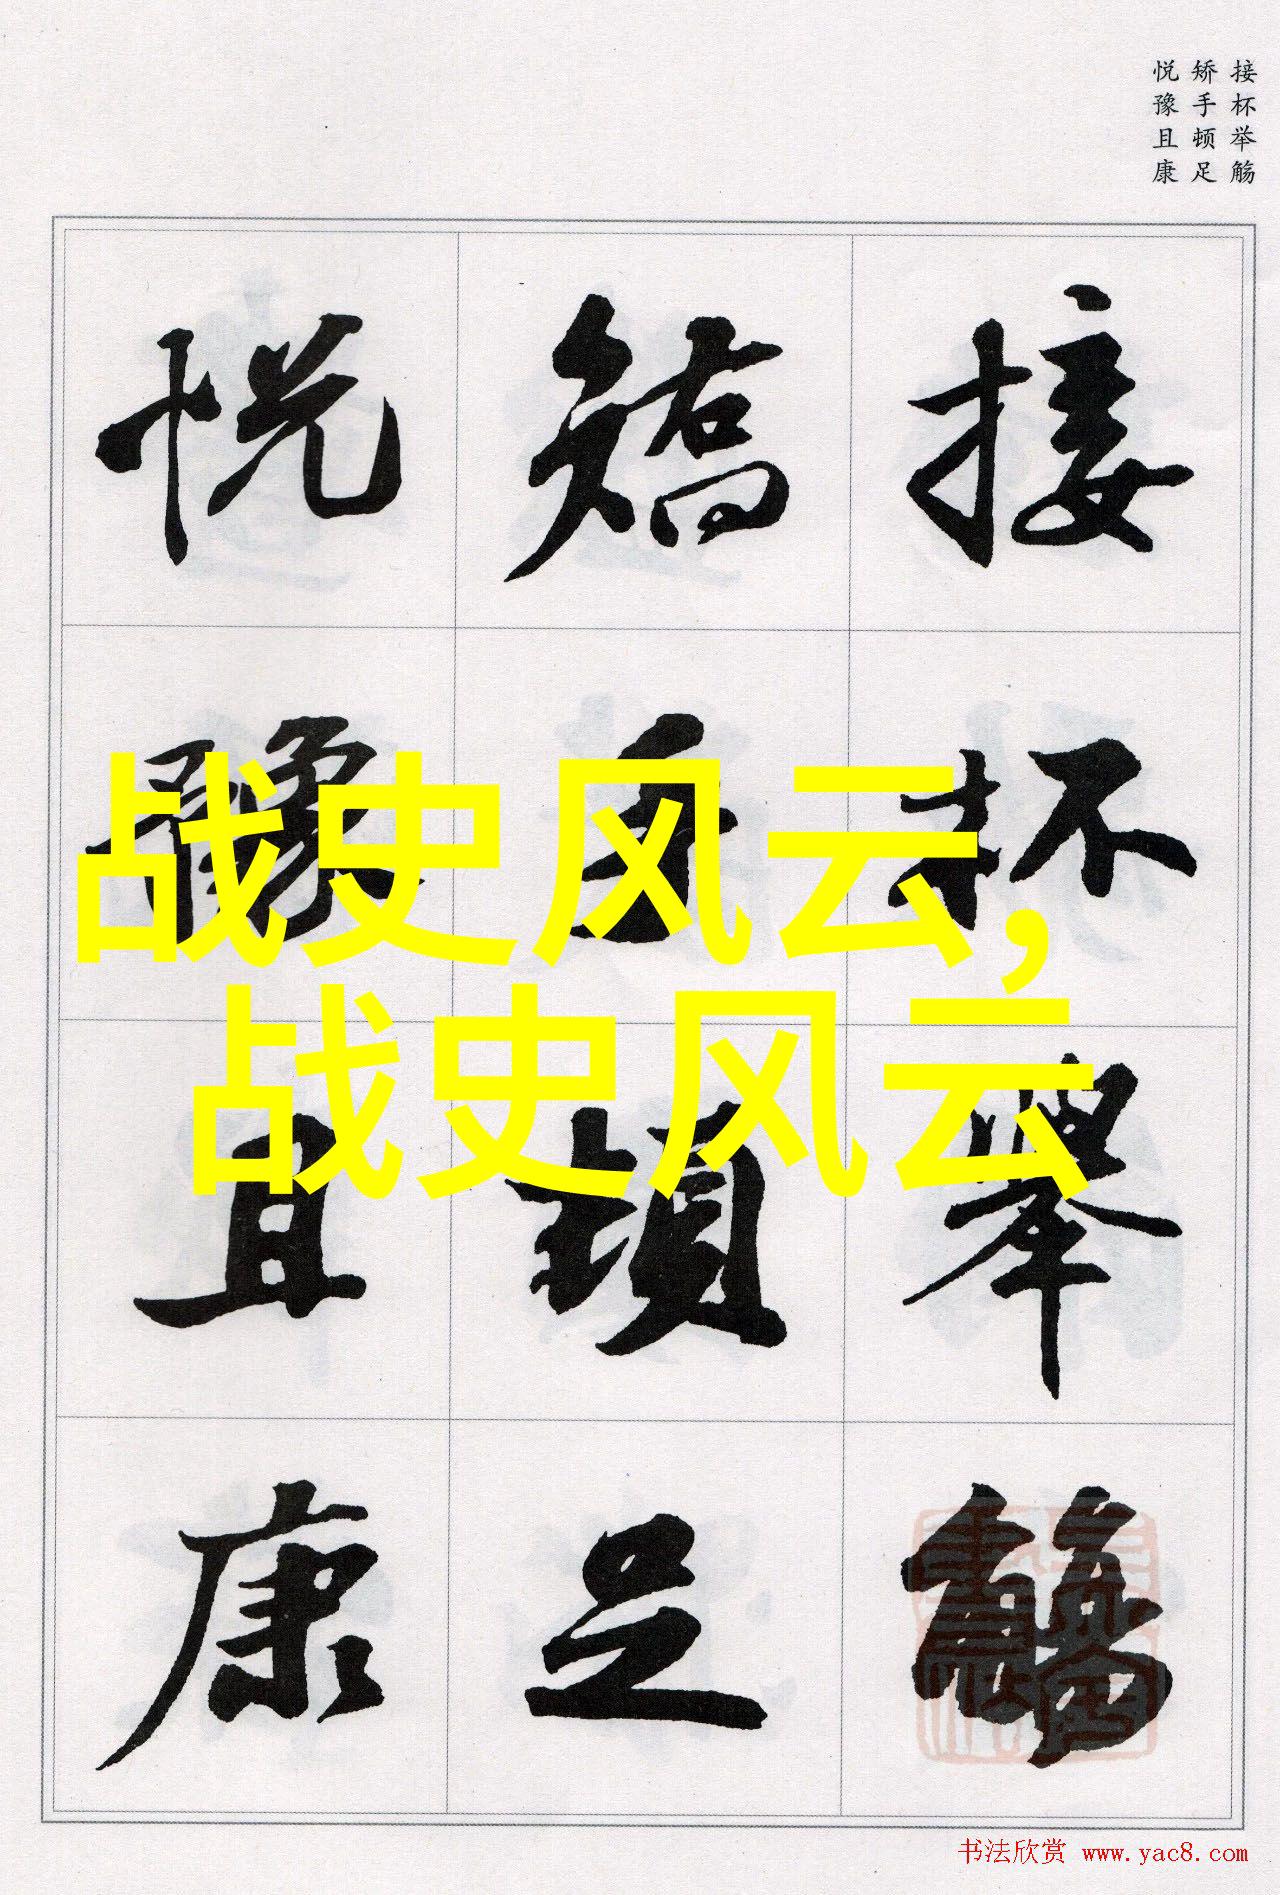 接杯举觞
矫手顿足
悦豫且康
接杯舉觴
矯手頓足
悦豫且康
战史风云,
战史风云
书法欣赏 www.yac8.com